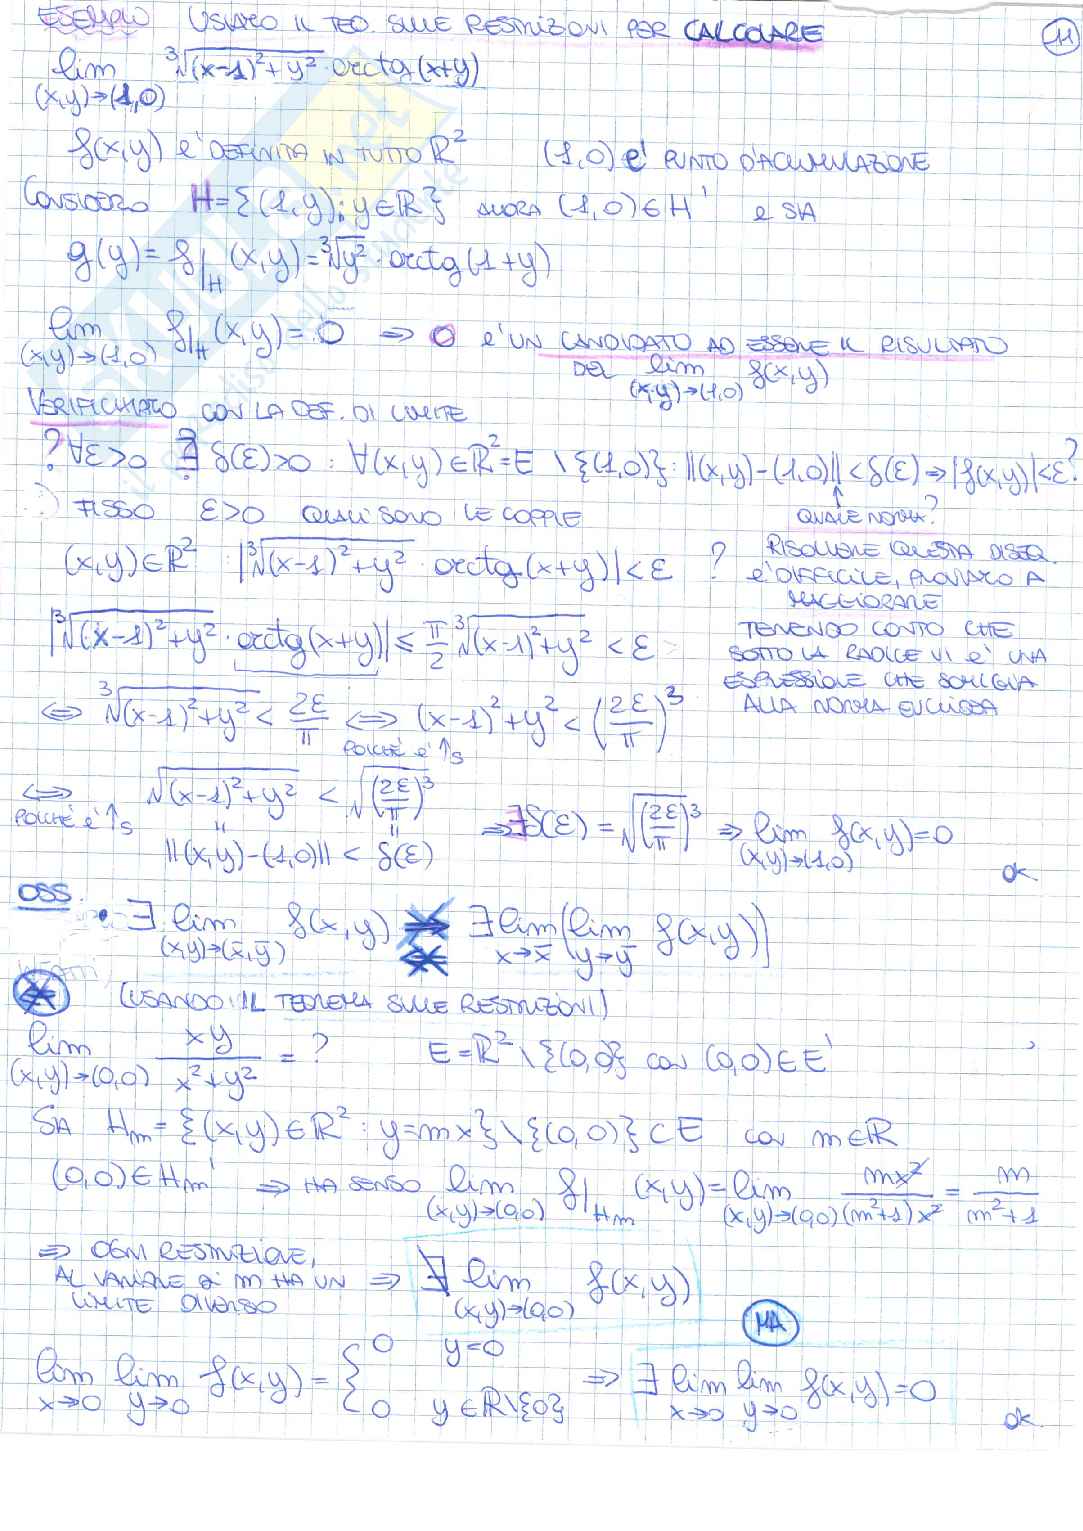 ESEMPIO USIAMO IL TEO. SULLE RESTRIZIONI PER CALCOLARE
11
lim ∛((x-1)²+y²) · arctg(x+y)
(x,y)→(1,0)
f(x,y) e' DEFINITA IN TUTTO ℝ² (1,0) e' PUNTO D'ACCUMULAZIONE
CONSIDERO H={(1,y): y∈ℝ} ALLORA (1,0)∈H' e SIA
g(y)= f|_H (x,y)=∛y² · arctg(1+y)
lim f|_H (x,y)=0 ⇒ 0 e' UN CANDIDATO AD ESSERE IL RISULTATO
(x,y)→(1,0)
DEL lim f(x,y)
(x,y)→(1,0)
VERIFICHIAMO CON LA DEF. DI LIMITE
? ∀ε>0 ∃ δ(ε)>0 : ∀(x,y)∈ℝ²=E \{(1,0)}: ||(x,y)-(1,0)|| < δ(ε) ⇒ |f(x,y)|<ε?
?
FISSO ε>0 QUALI SONO LE COPPIE
QUALE NORMA?
(x,y)∈ℝ² |∛((x-1)²+y²) · arctg(x+y)|<ε ?
RISOLVERE QUESTA DISEQ.
e' DIFFICILE, PROVIAMO A
MAGGIORARE
|∛((x-1)²+y²) · arctg(x+y)| ≤ π/2 ∛((x-1)²+y²) < ε
TENENDO CONTO CHE
SOTTO LA RADICE VI e' UNA
ESPRESSIONE CHE SOMIGLIA
ALLA NORMA EUCLIDEA
⇔ ∛((x-1)²+y²) < 2ε/π ⇔ (x-1)²+y² < (2ε/π)³
POICHÉ e' ↑s
⇔ √((x-1)²+y²) < √((2ε/π)³)
POICHÉ e' ↑s
⇒ ∃δ(ε) = √((2ε/π)³) ⇒ lim f(x,y)=0
(x,y)→(1,0)
" =
||(x,y)-(1,0)|| < δ(ε)
ok.
OSS.
• ∃ lim f(x,y) ⇏ ∃ lim(lim f(x,y))
(x,y)→(x̄,ȳ) ⇍ x→x̄ y→ȳ
⇏ (USANDO IL TEOREMA SULLE RESTRIZIONI)
lim xy/(x²+y²) = ? E=ℝ²\{(0,0)} con (0,0)∈E'
(x,y)→(0,0)
SIA Hm={(x,y)∈ℝ² : y=mx}\{(0,0)}⊂E con m∈ℝ
(0,0)∈Hm' ⇒ HA SENSO lim f|_Hm (x,y)=lim mx²/((m²+1)x²) = m/(m²+1)
(x,y)→(0,0) (x,y)→(0,0)
⇒ OGNI RESTRIZIONE,
AL VARIARE di m HA UN ⇒ ∄ lim f(x,y)
LIMITE DIVERSO (x,y)→(0,0)
MA
lim lim f(x,y) = { 0 y=0
x→0 y→0 0 y∈ℝ\{0}
⇒ ∃ lim lim f(x,y)=0
x→0 y→0
ok.